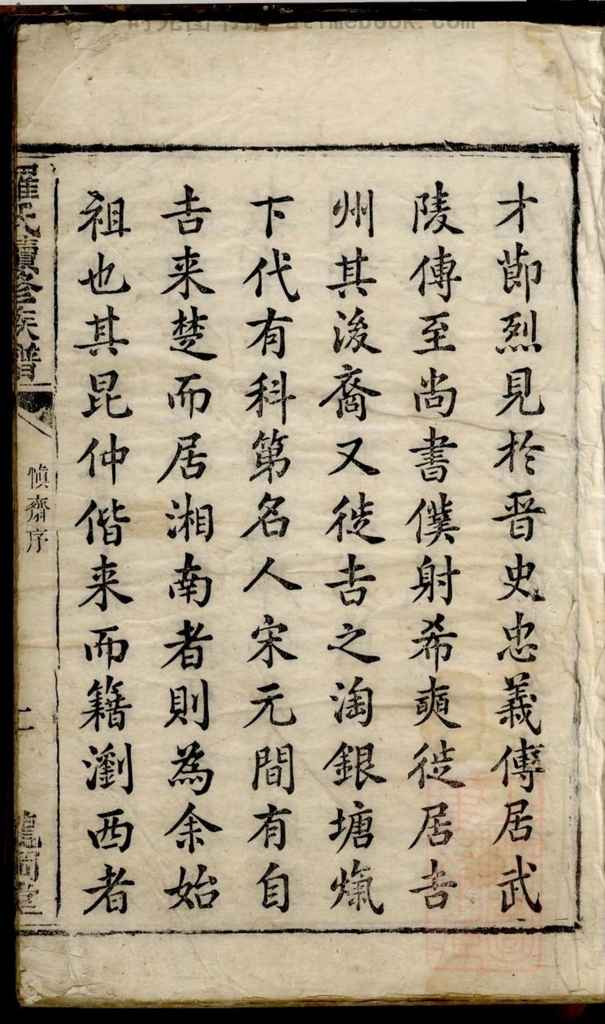 才節烈見於晋史忠義傳居武
陵傳至尚書僕射希奭徙居吉
州其後裔又徙吉之淘銀塘嶺
下代有科第名人宋元間有自
吉来楚而居湘南者則為余始
祖也其昆仲偕来而籍瀏西者
羅氏續修族譜
慎齋序
二